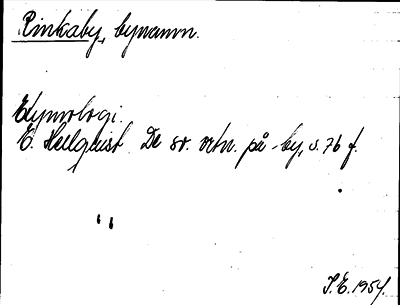 Rinkaby, bynamn.
Etymologi.
E. Hellquist De sv. ortn. på -by, s. 76 f.
J.E. 1954.